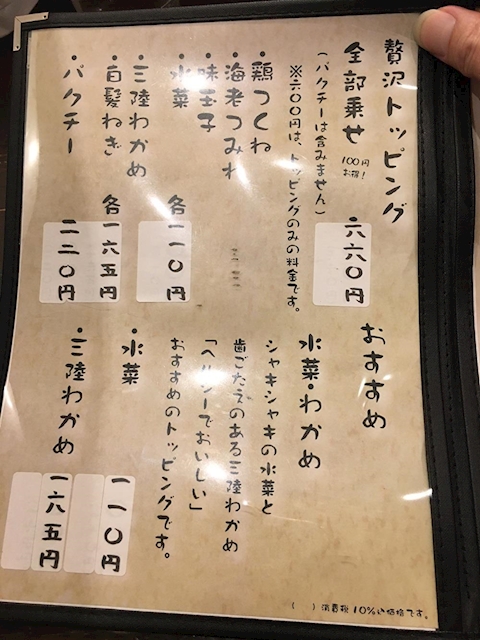 贅沢トッピング
全部乗せ 100円お得! 六六〇円
(パクチーは含みません)
※六〇〇円は、トッピングのみの料金です。
・鶏つくね
・海老つみれ
・味玉子
・水菜 各一一〇円
・三陸わかめ
・白髪ねぎ 各一六五円
・パクチー 二二〇円
おすすめ
水菜・わかめ
シャキシャキの水菜と
歯ごたえのある三陸わかめ
「ヘルシーでおいしい」
おすすめのトッピングです。
・水菜 一一〇円
・三陸わかめ 一六五円
( )消費税10%込価格です。